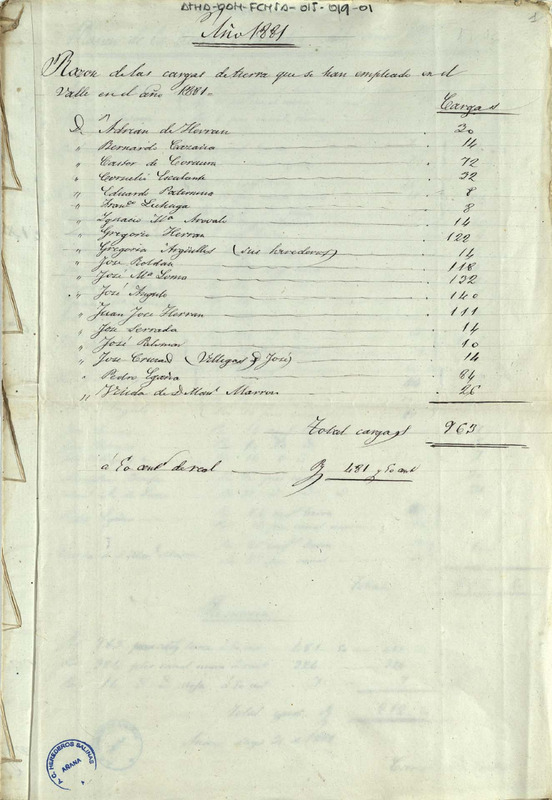 ATHA-DAH-FCHSA-015-019-01
1
Año 1881
Razon de las cargas de tierra que se han empleado en el
Valle en el año 1881=
Cargas
D.n Adrian de Herran 30
" Bernardo 14
" Castor de 72
" Cornelio Escalante 32
" Eduardo Paternina 8
" Fran.co Lechuga 8
" Ignacio M.a 14
" Gregorio Herran 122
" Gregorio Argüelles (sus herederos) 14
" Jose Roldán 118
" José M.a 132
" José Angulo 140
" Juan Jose Herran 111
" Jose Serrada 14
" José Palomar 10
" Jose (Villegas José) 14
" Pedro Egaña 84
" Viuda de D. Man.l Marron 26
Total cargas 963
á 50 cent.s de real 481 y 50 cent
HEREDEROS SALINAS
AÑANA